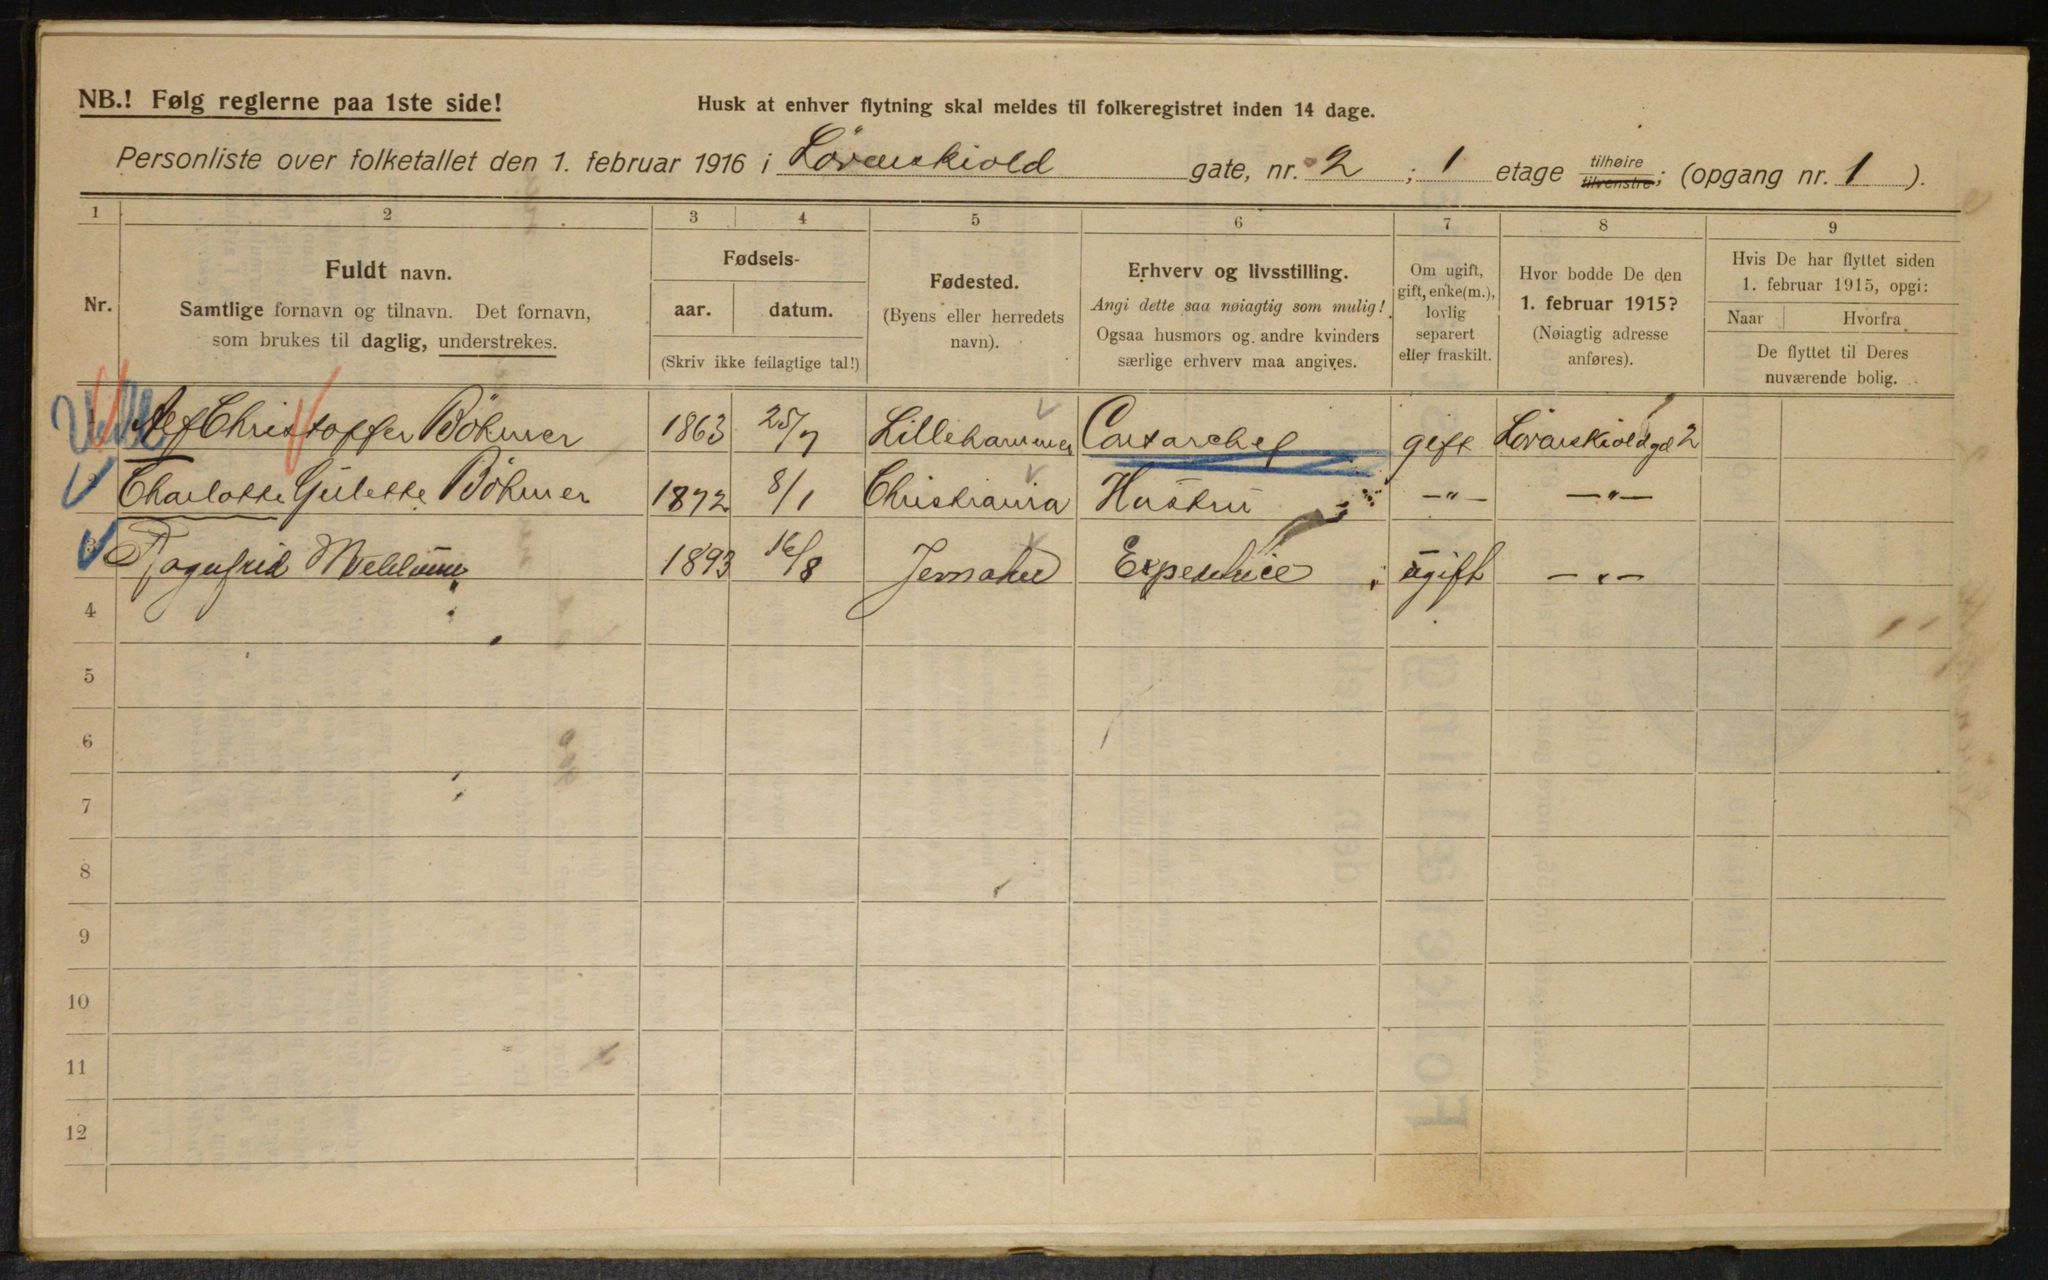 NB.! Følg reglerne paa 1ste side!
Husk at enhver flytning skal meldes til folkeregistret inden 14 dage.
Personliste over folketallet den 1. februar 1916 i Løvenskiold gate, nr. 2 ; 1 etage tilhøire tilvenstre; (opgang nr. 1 ).
1 2 3 4 5 6 7 8 9
Nr.
Fuldt navn.
Samtlige fornavn og tilnavn. Det fornavn,
som brukes til daglig, understrekes.
Fødsels-
aar. datum.
(Skriv ikke feilagtige tal!)
Fødested.
(Byens eller herredets
navn).
Erhverv og livsstilling.
Angi dette saa nøiagtig som mulig!
Ogsaa husmors og andre kvinders
særlige erhverv maa angives.
Om ugift,
gift, enke(m.),
lovlig
separert
eller fraskilt.
Hvor bodde De den
1. februar 1915?
(Nøiagtig adresse
anføres).
Hvis De har flyttet siden
1. februar 1915, opgi:
Naar Hvorfra
De flyttet til Deres
nuværende bolig.
Christoffer Böhmer 1863 25/7 Lillehammer gift Løvenskioldgd 2
Charlotte Gulette Böhmer 1872 8/1 Christiania Hustru —„— —„—
3 Ragnfrid 1893 16/8 Jevnaker ugift —„—
4
5
6
7
8
9
10
11
12